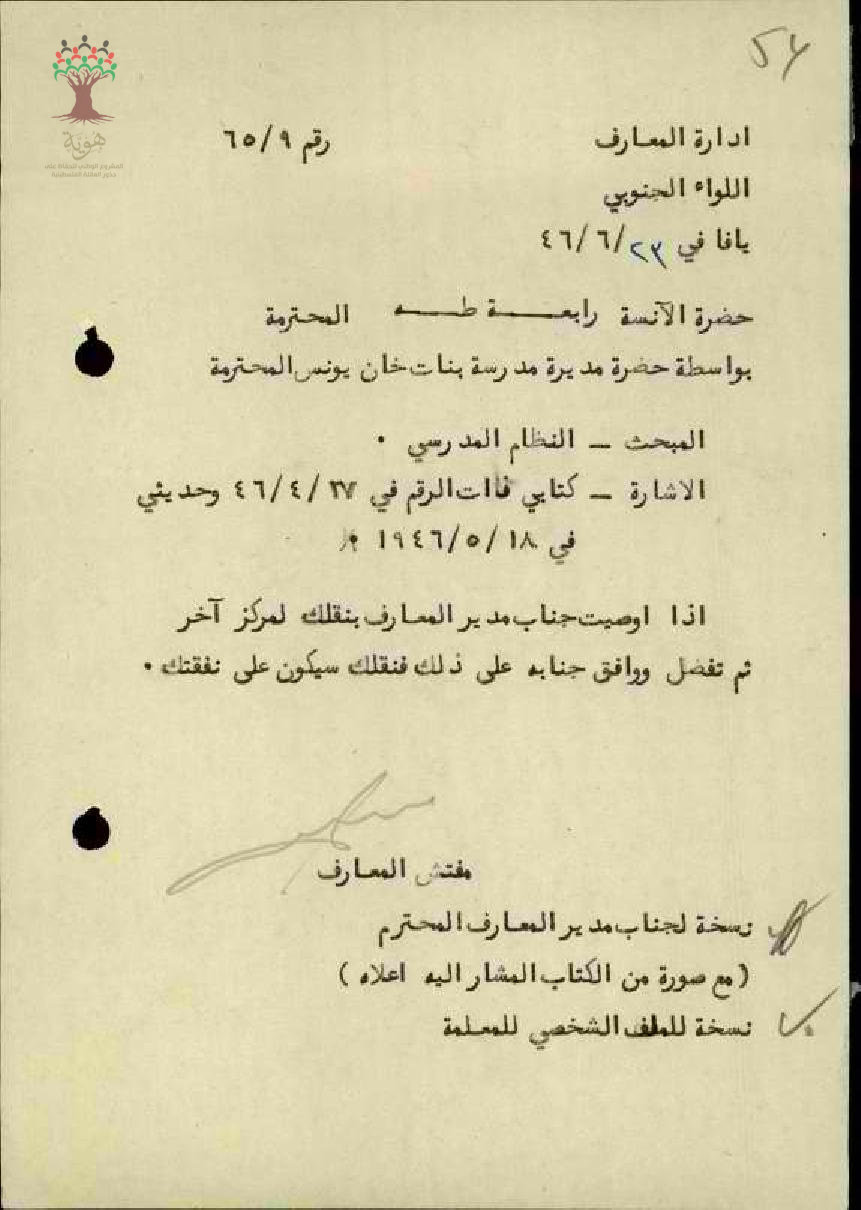 ٥٧
هوية
المشروع الوطني للحفاظ على
جذور العائلة الفلسطينية
ادارة المعارف رقم ٦٥/٩
اللواء الجنوبي
يافا في ٤٦/٦/٢٣
حضرة الآنسة رابعـــة طـــه المحترمة
بواسطة حضرة مديرة مدرسة بنات خان يونس المحترمة
المبحث – النظام المدرسي ٠
الاشارة – كتابي فاات الرقم في ٤٦/٤/٢٧ وحديثي
في ١٩٤٦/٥/١٨ ٠
اذا اوصيت جناب مدير المعارف بنقلك لمركز آخر
ثم تفضل ووافق جنابه على ذلك فنقلك سيكون على نفقتك ٠
مفتش المعارف
نسخة لجناب مدير المعارف المحترم
(مع صورة من الكتاب المشار اليه اعلاه)
نسخة للملف الشخصي للمعلمة